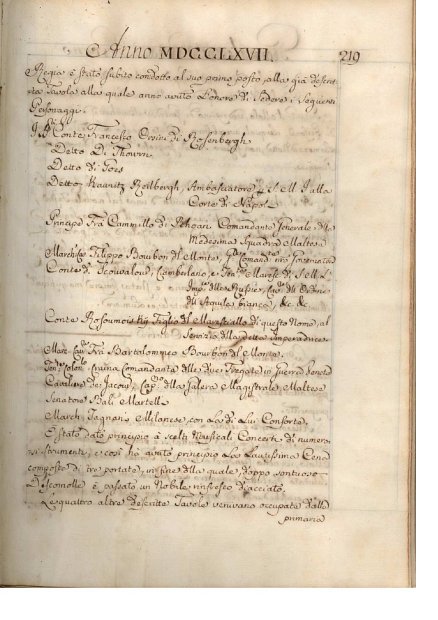 Anno MDCCLXVII. 219
Regia è stato subito condotto al suo primo posto alla già descrit-
ta Tavola alla quale anno avuto l'onore di Sedere i Seguenti
Personaggi:
Conte Francesco Orsini di Rosenbergh
Detto Di Thourn
Detto di Goes
Detto Kaunitz Ambasciatore di S: M: I: alla
Corte di Napoli
Principe Frà Cammillo di Rohan Comandante Generale della
Medesima Squadra Maltese
March: Filippo Bourbon del Monte,
Conte di Ciamberlano, e di S: M: I:
Imp: delle Russie, Cav: dell' Ordine
dell' Aquila bianca, &c. &c.
Conte Figlio del Maresciallo di questo Nome, al
Servizio della detta Imperadrice
March: Cav: Fri Bartolommeo Bourbon del Monte
Comandante delle due Fregate in Guerra Venete
Cavaliere Cap: della Galera Magistrale Maltese
Senatore Balì Martelli
March: Milanese, con La di Lui Consorte.
È stato dato principio à scelti Musicali Concerti di numero-
si strumenti, e così ha avuto principio La Lautissima Cena
composta di tre portate, in fine della quale, doppo sontuoso
è passato un Nobile rinfresco diacciato.
Le quattro altre descritte Tavole venivano occupate dalla
primaria